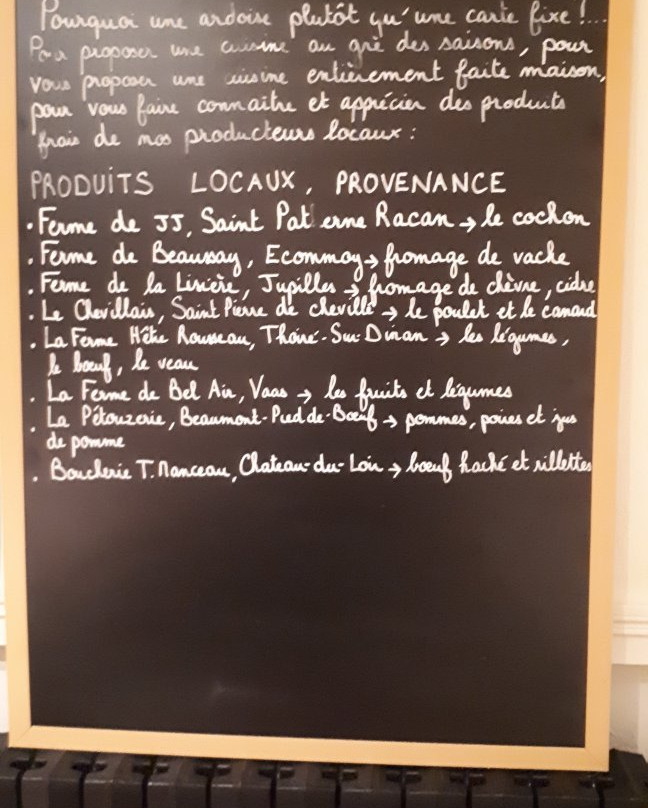 Pourquoi une ardoise plutôt qu'une carte fixe !...
Pour proposer une cuisine au gré des saisons, pour
vous proposer une cuisine entièrement faite maison,
pour vous faire connaître et apprécier des produits
frais de nos producteurs locaux :
PRODUITS LOCAUX, PROVENANCE
. Ferme de JJ, Saint Pat erne Racan → le cochon
. Ferme de Beaussay, Ecommoy → fromage de vache
. Ferme de la Livière, Jupilles → fromage de chèvre, cidre
. Le Chevillais, Saint Pierre de chevillé → le poulet et le canard
. La Ferme Rousseau, Thoiré-Sur-Dinan → les légumes,
le bœuf, le veau
. La Ferme de Bel Air, Vaas → les fruits et légumes
. La Pétouzerie, Beaumont-Pied-de-Bœuf → pommes, poires et jus
de pomme
. Boucherie T. Manceau, Chateau-du-Loir → bœuf haché et rillettes